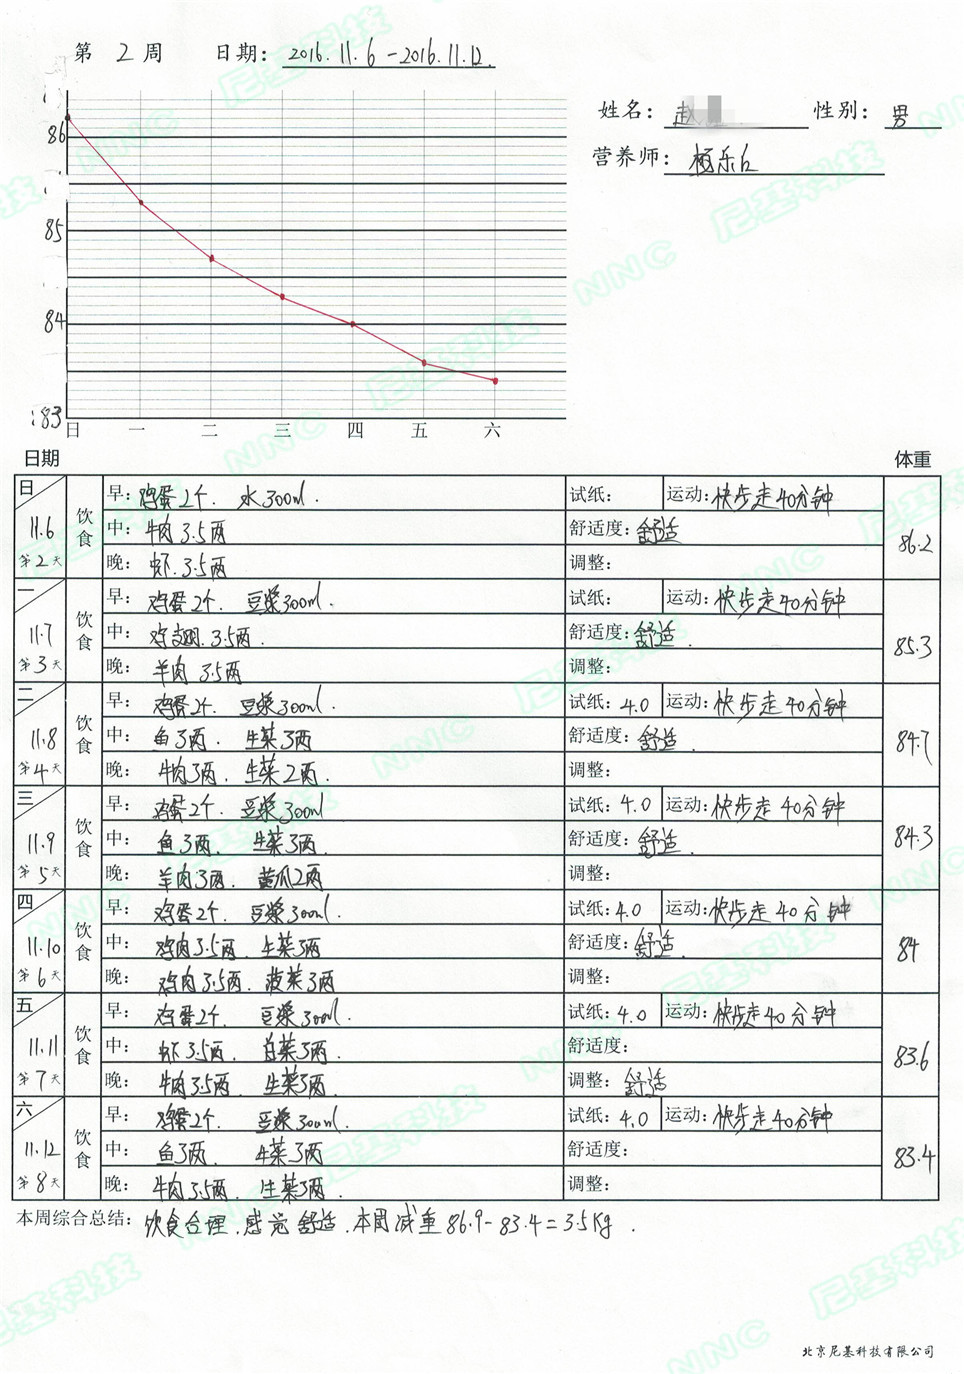 第 2 周 日期: 2016.11.6-2016.11.12.
姓名: 赵 性别: 男
营养师:
86
85
84
83
日 一 二 三 四 五 六
日期 体重
日 11.6 第2天 饮食 86.2
早: 鸡蛋2个. 水300ml. 试纸: 运动: 快步走40分钟
中: 牛肉3.5两 舒适度: 舒适
晚: 虾.3.5两 调整:
一 11.7 第3天 饮食 85.3
早: 鸡蛋2个. 豆浆300ml. 试纸: 运动: 快步走40分钟
中: 鸡翅.3.5两. 舒适度: 舒适.
晚: 羊肉3.5两 调整:
二 11.8 第4天 饮食 84.7
早: 鸡蛋2个. 豆浆300ml 试纸: 4.0 运动: 快步走40分钟
中: 鱼3两. 生菜3两 舒适度: 舒适.
晚: 牛肉3两. 生菜2两. 调整:
三 11.9 第5天 饮食 84.3
早: 鸡蛋2个. 豆浆300ml 试纸: 4.0 运动: 快步走40分钟
中: 鱼3两. 生菜3两. 舒适度: 舒适.
晚: 羊肉3两. 黄瓜2两 调整:
四 11.10 第6天 饮食 84
早: 鸡蛋2个. 豆浆300ml. 试纸: 4.0 运动: 快步走40分钟
中: 鸡肉3.5两. 生菜3两 舒适度: 舒适.
晚: 鸡肉3.5两. 菠菜3两 调整:
五 11.11 第7天 饮食 83.6
早: 鸡蛋2个. 豆浆300ml. 试纸: 4.0 运动: 快步走40分钟
中: 虾3.5两. 白菜3两. 舒适度:
晚: 牛肉3.5两. 生菜3两. 调整: 舒适
六 11.12 第8天 饮食 83.4
早: 鸡蛋2个. 豆浆300ml. 试纸: 4.0 运动: 快步走40分钟
中: 鱼3两. 生菜3两 舒适度:
晚: 牛肉3.5两. 生菜3两. 调整:
本周综合总结: 饮食合理.感觉舒适.本周减重86.9-83.4=3.5Kg.
北京尼基科技有限公司
尼基科技 NNC